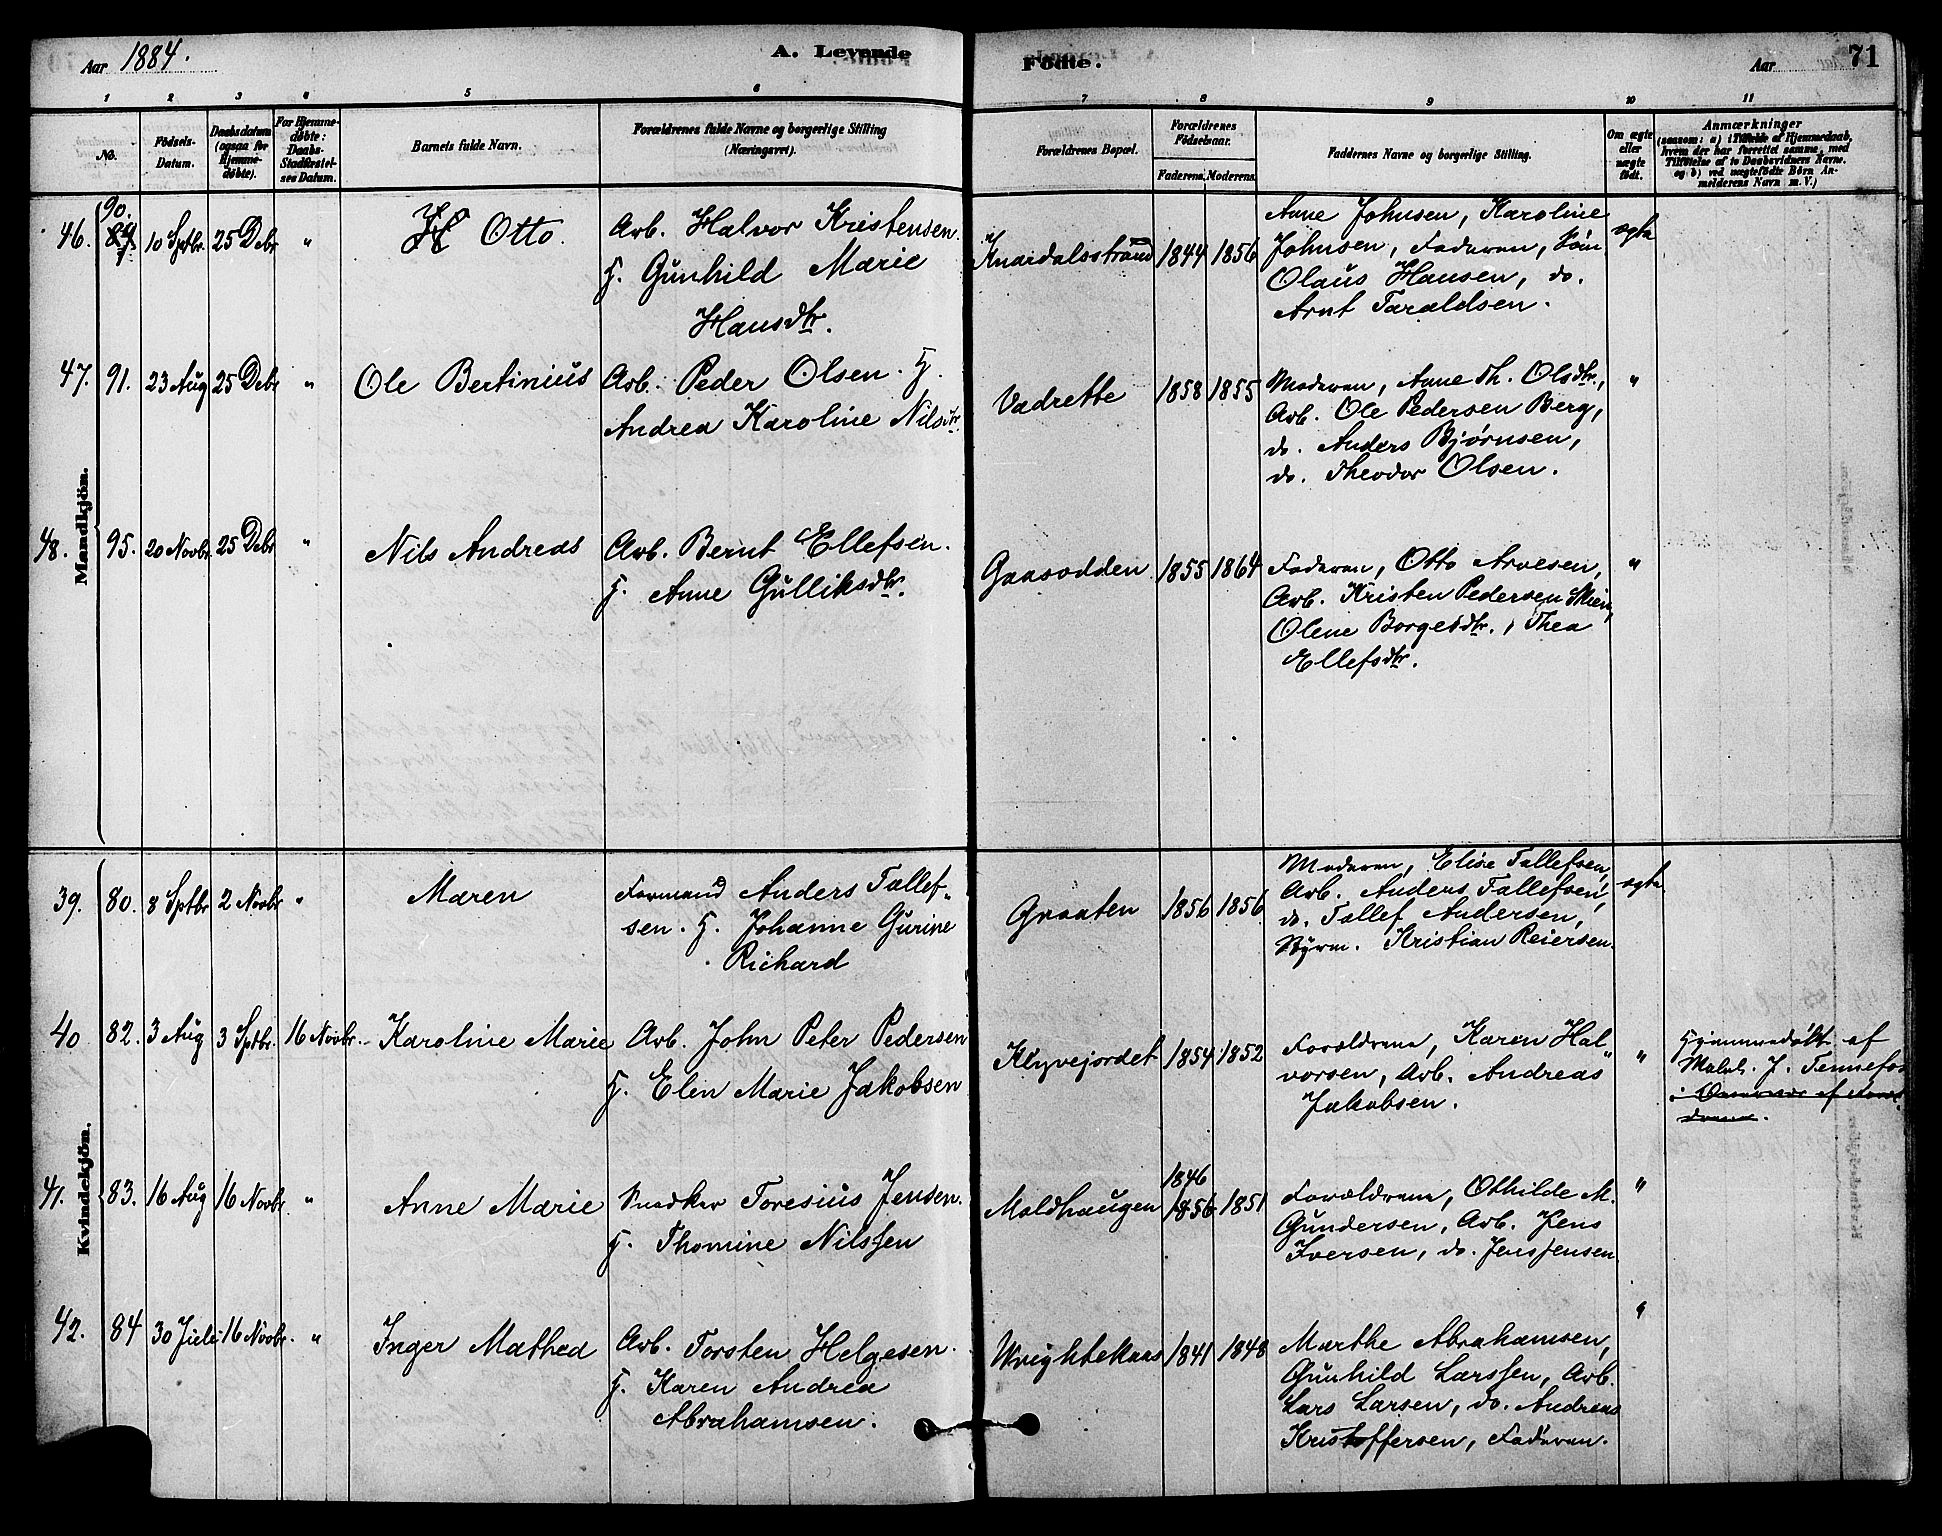 Aar 1884.
A. Levende
Födte.
Aar
71
1 2 3 4 5 6 7 8 9 10 11
No.
Födsels-
Datum.
Daabsdatum
(ogsaa for
Hjemme-
døbte).
For Hjemme-
døbte:
Daabs-
Stadfæstel-
ses Datum.
Barnets fulde Navn.
Forældrenes fulde Navne og borgerlige Stilling
(Næringsvei).
Forældrenes Bopæl.
Forældrenes
Födselsaar.
Faderens. Moderens.
Faddernes Navne og borgerlige Stilling.
Om ægte
eller
uægte
födt.
Anmærkninger
(saasom: a) i Tilfælde af Hjemmedaab,
hvem der har forrettet samme, med
Tilföielse af to Daabsvidners Navne.
og b) ved uægtefödte Börn An-
melderens Navn m. V.)
Mandkjön.
46. 90. 10 Sptbr. 25 Debr "
Otto.
Arb. Halvor Kristensen.
H. Gunhild Marie
Hansdtr.
Knardalsstrand 1844 1856
Anne Johnsen, Karoline
Johnsen, Faderen, Søm.
Olaus Hansen, do.
Arnt Taraldsen.
ægte
47. 91. 23 Aug 25 Debr "
Ole Bertinius
Arb. Peder Olsen. H.
Andrea Karoline Nilsdtr.
Vadrette 1858 1855
Moderen, Anne Th. Olsdtr.,
Arb. Ole Pedersen Berg,
do. Anders Bjørnsen,
do. Theodor Olsen.
"
48. 95. 20 Novbr. 25 Debr "
Nils Andreas
Arb. Bernt Ellefsen.
H. Anne Gulliksdtr.
Gaasodden. 1855 1864
Faderen, Otto Arvesen,
Arb. Kristen Pedersen Skien,
Olene Borgesdtr., Thea
Ellefsdtr.
"
Kvindekjön.
39. 80. 8 Sptbr 2 Novbr "
Maren
Formand Anders Tallef-
sen. H. Johanne Gurine
Richard
Graaten 1856 1856
Moderen, Elise Tallefsen,
Arb. Anders Tallefsen,
do. Tallef Andersen,
Styrm. Kristian Reiersen.
ægte
40 82. 3 Aug 3 Sptbr. 16 Novbr.
Karoline Marie
Arb. John Peter Pedersen
H. Elen Marie Jakobsen
Klyvejordet 1854 1852
Forældrene, Karen Hal-
vorsen, Arb. Andreas
Jakobsen.
"
Hjemmedøbt af
J. Tennefos
41. 83. 16 Aug 16 Novbr. "
Anne Marie
Snedker Toresius Jensen.
H. Thomine Nilssen
Moldhaugen 1846 1856 1851
Forældrene, Othilde M.
Gundersen, Arb. Jens
Iversen, do. Jens Jensen
"
42. 84 30 Juli 16 Novbr. "
Inger Mathea
Arb. Torsten Helgesen.
H. Karen Andrea
Abrahamsen.
Wrightekaas 1841 1848
Marthe Abrahamsen,
Gunhild Larssen, Arb.
Lars Larsen, do. Andreas
Kristoffersen, Faderen.
"